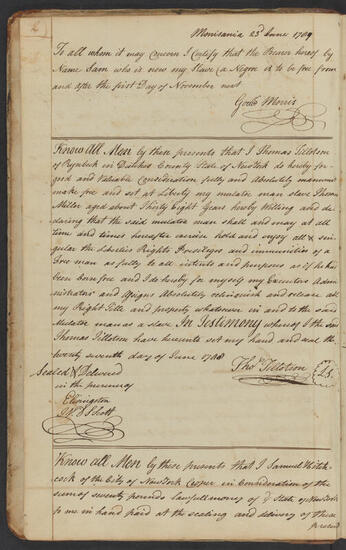 2
Morrisania 23d June 1789
To all whom it may Concern I Certify that the Bearer hereof by
Name Sam who is now my Slave (a Negro) is to be free from
and after the first Day of November next
Morris
Know All Men by these presents that I Thomas Tillotson
of Rynbeck in Dutchess County State of New York do hereby for
good and Valuable Consideration fully and Absolutely manumit
make free and set at Liberty my mulatto man slave
Miller aged about Thirty Eight Years hereby Willing and de
claring that the said mulatto man shall and may at all
time and times hereafter exercise hold and enjoy all & sin
gular the Liberties Rights Privileges and immunities of a
free man as fully to all intents and purposes as if he has
been born free and I do hereby for myself my Executors Admi
nistrators and Assigns Absolutely relinquish and release all
my Right Title and property whatsoever in and to the said
Mulatto man as a slave. In Testimony whereof I the said
Thomas Tillotson have hereunto set my hand and seal the
twenty seventh day of June
Thos Tillotson L.S.
Sealed & Delivered
in the presence of
Livingston
Scott
Know all Men by these presents that I Samuel Hitch
cock of the City of New York in Consideration of the
sum of seventy pounds lawfull money of ye State of New York
to me in hand paid at the sealing and delivery of these
present